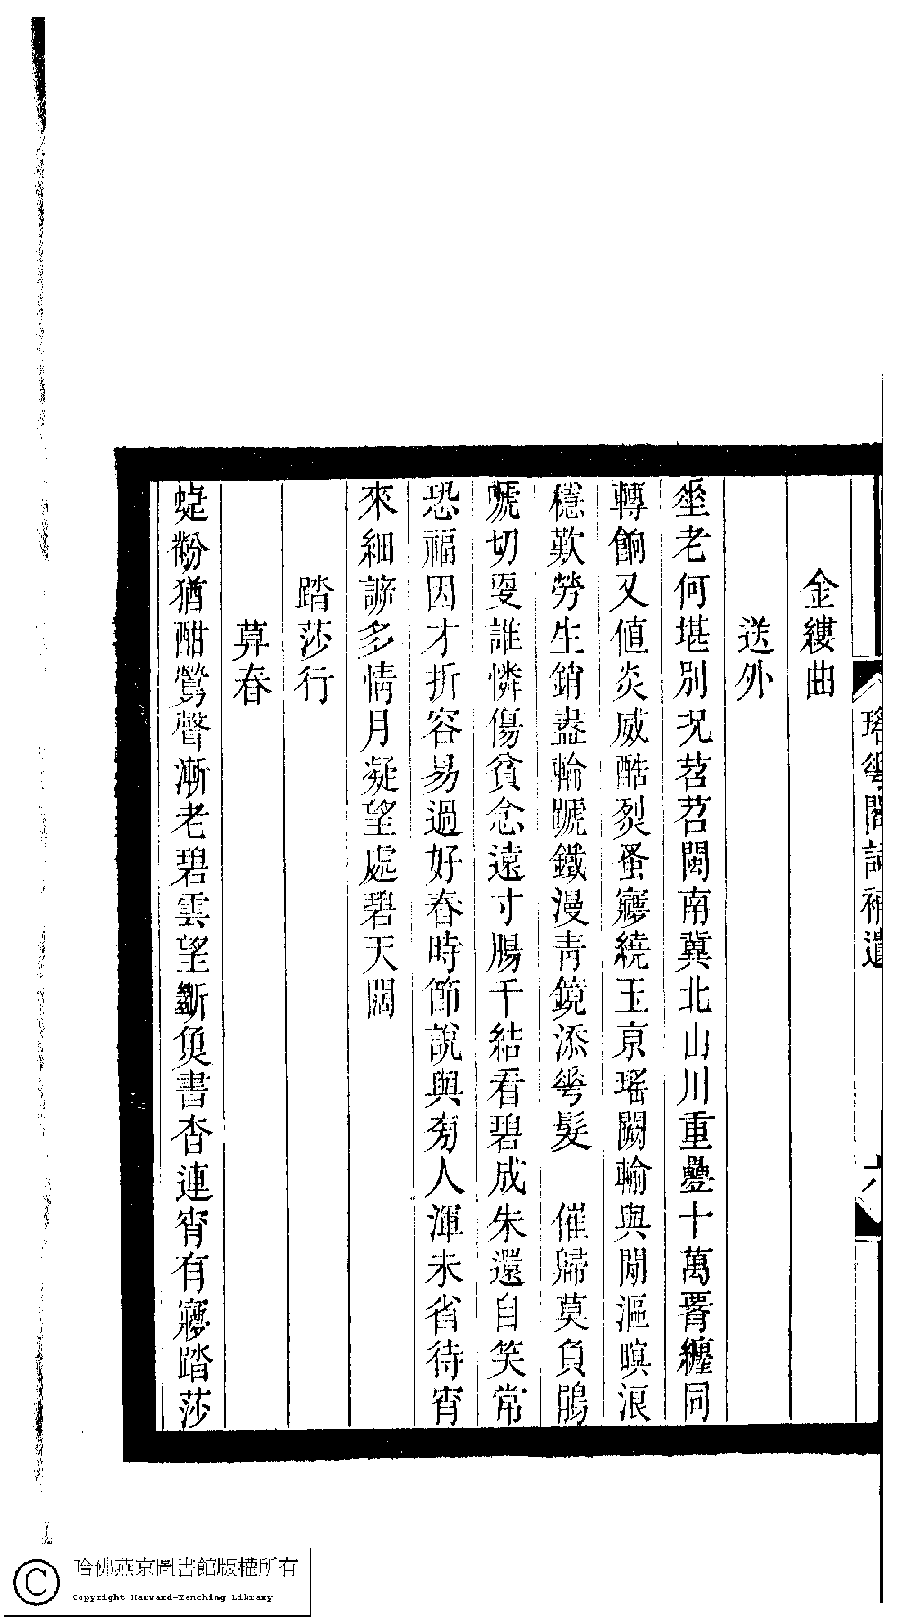 瑤華閣詞補遺
六
金縷曲
送外
㘴老何堪別况苕苕閩南冀北山川重疊十萬胥纏同
轉餉又值炎威酷裂蚤㝱繞玉京瑤闕輸與閒漚暝浪
穩歎勞生銷盡輪蹏鐵漫青鏡添華髮　催歸莫負鵑
號切㪅誰憐傷貧念遠寸腸千結看碧成朱還自笑常
恐福因才折容易過好春時節說與旁人渾未省待宵
來細諦多情月凝望處碧天闊
踏莎行
算春
蜨粉猶酣鶯聲漸老碧雲望斷魚書杳連宵有㝱踏莎
哈佛燕京圖書館版權所有
Copyright Harvard-Yenching Library